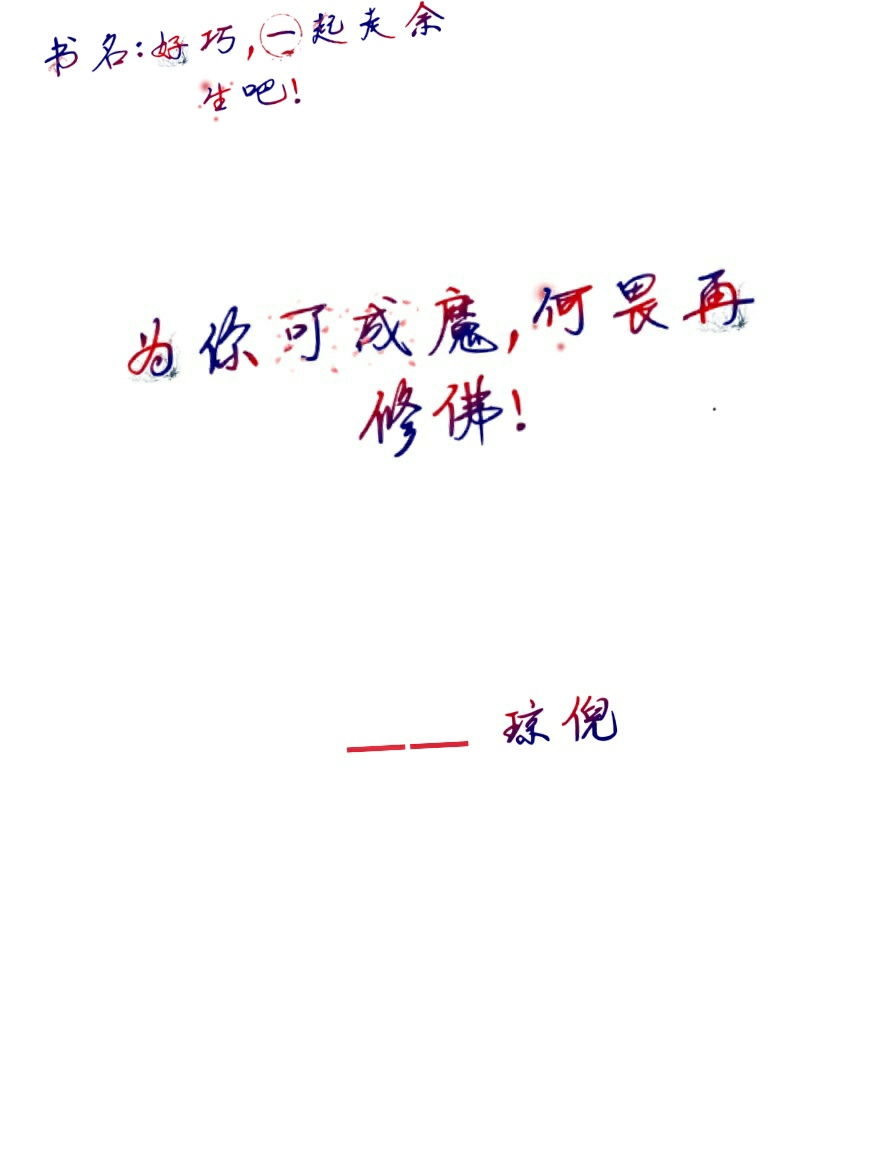 书名:好巧,一起走余
生吧!
为你可成魔,何畏再
修佛!
——琼倪